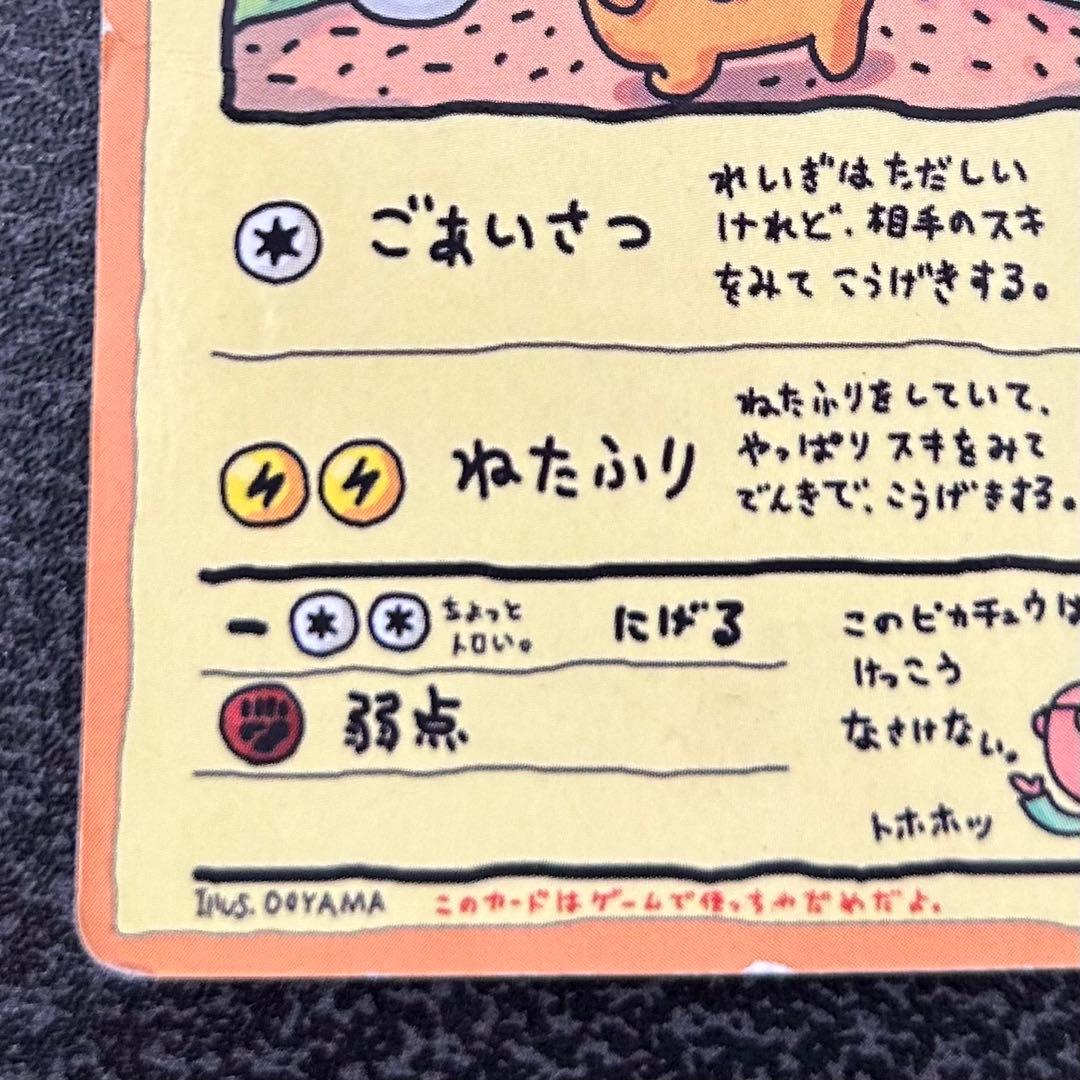 ごあいさつ
れいぎはただしい
けれど、相手のスキ
をみて こうげきする。
ねたふり
ねたふりをしていて、
やっぱり スキをみて
でんきで、こうげきする。
ー
ちょっと
トロい。
にげる
弱点
このピカチュウは
けっこう
なさけない。
トホホッ
Illus. OOYAMA
このカードはゲームで使っちゃだめだよ.